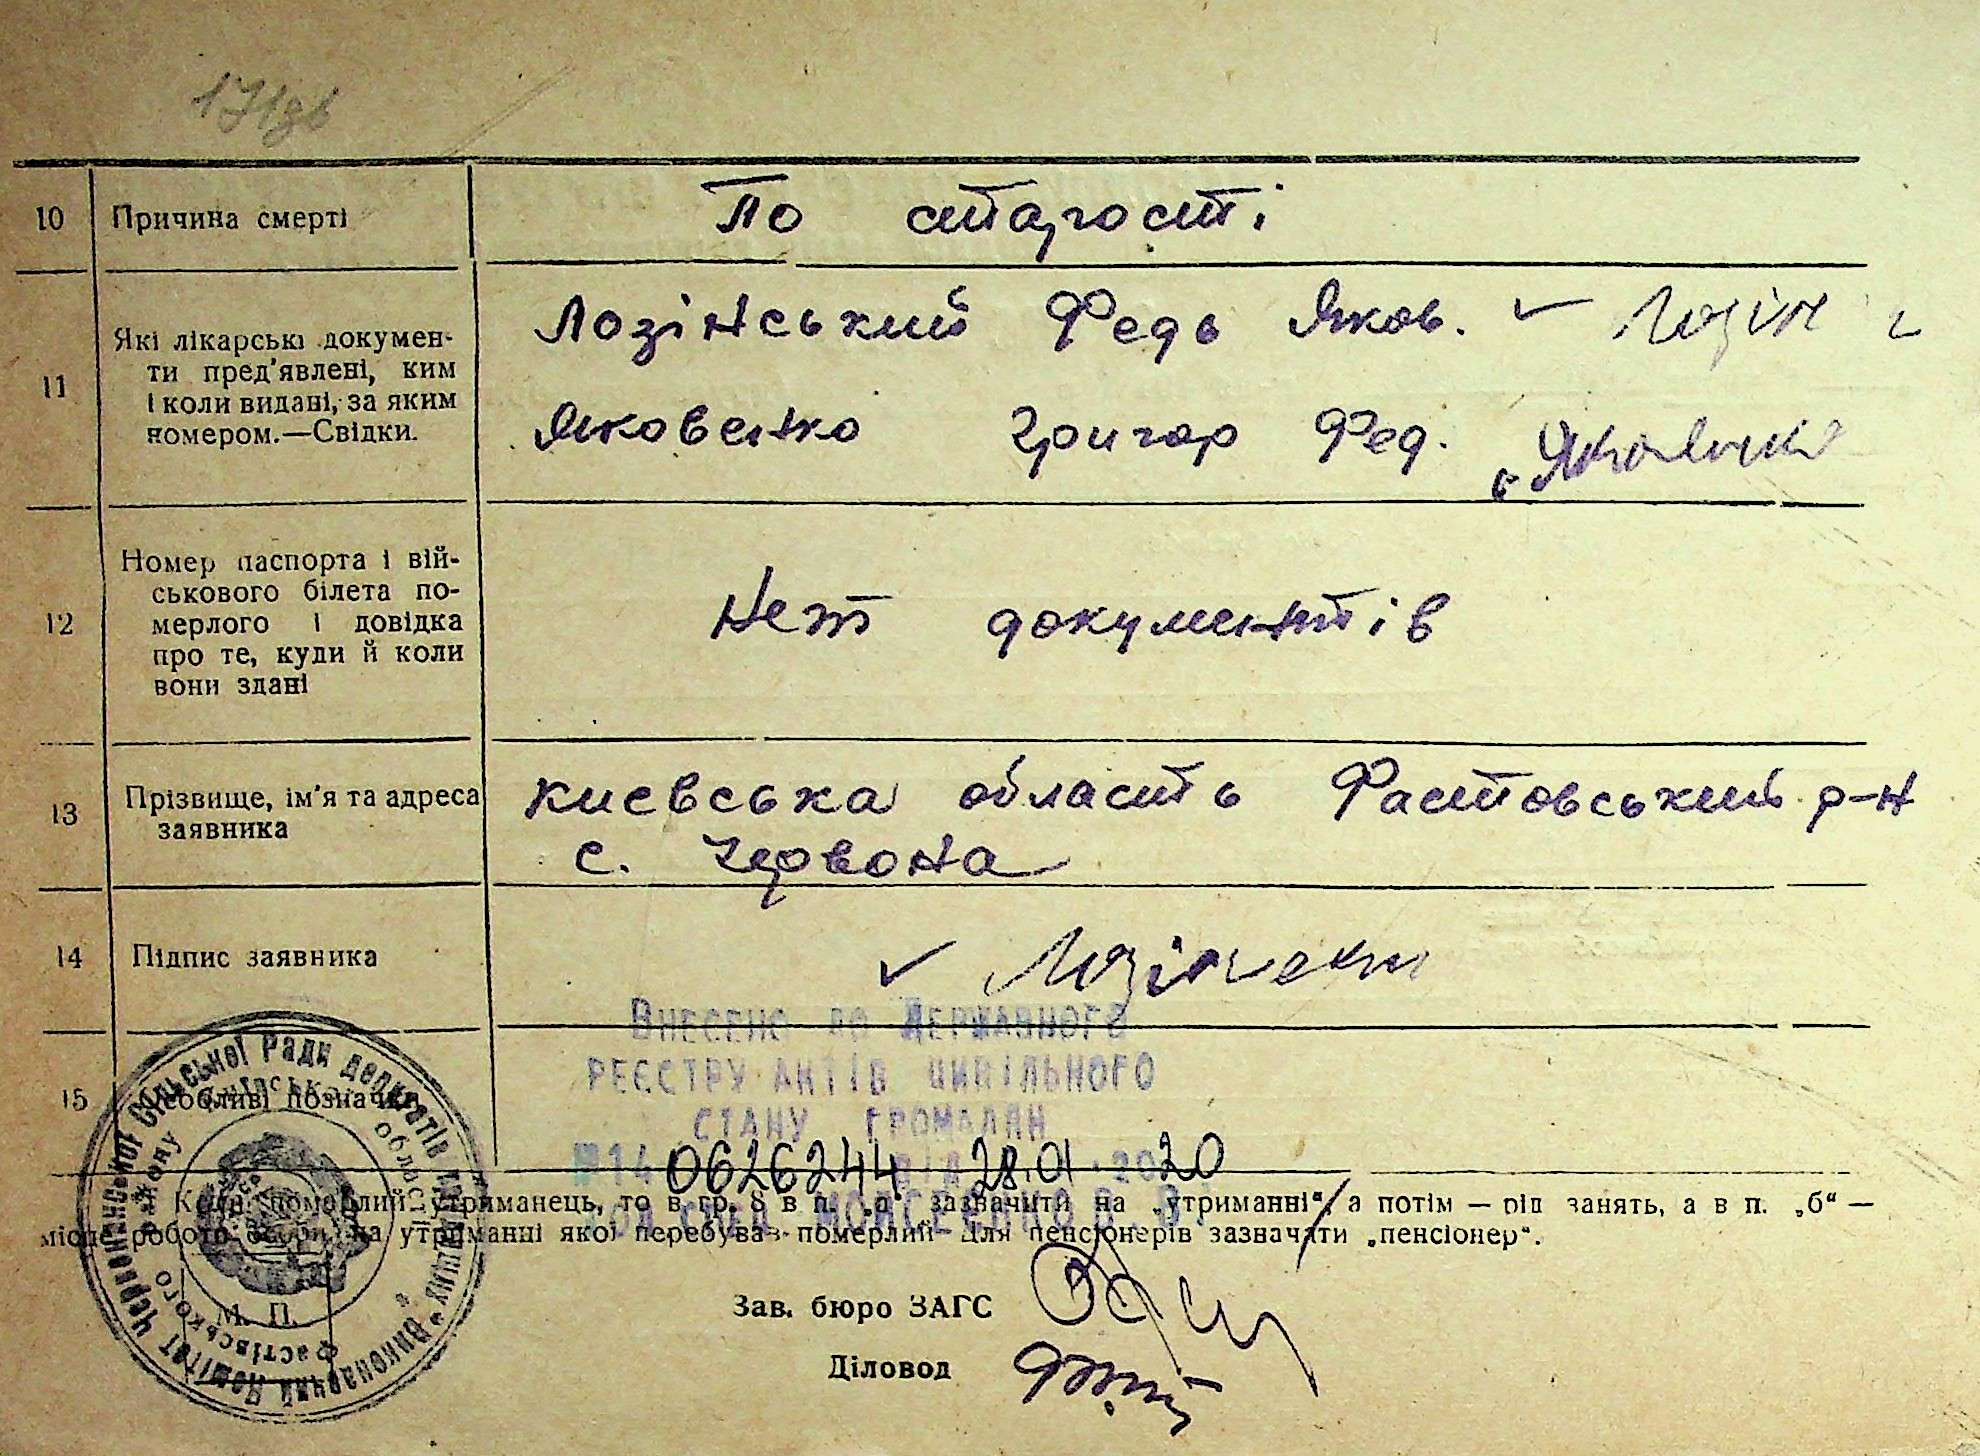 10 Причина смерті По старості
11 Які лікарські докумен-
ти пред'явлені, ким
і коли видані, за яким
номером.—Свідки.
Лозінський Федь Яков. Лозін
Яковенко Григор Фед.
12 Номер паспорта і вій-
ськового білета по-
мерлого і довідка
про те, куди й коли
вони здані
Нет документів
13 Прізвище, ім'я та адреса
заявника
Киевська область Фастовський р-н
с. Червона
14 Підпис заявника
15 Особливі позначки
Внесено до Державного
реєстру актів цивільного
стану громадян
№ 14 0626244 від 28.01.2020
Коли померлий утриманець, то в гр. 8 в п. „а" зазначити на „утриманні", а потім — рід занять, а в п. „б" —
місце роботи особи, на утриманні якої перебував померлий. Для пенсіонерів зазначати „пенсіонер".
М. П.
Зав. бюро ЗАГС
Діловод
Виконавчий Комітет Червонянської Сільської Ради депутатів трудящих
Фастівського району Київської області